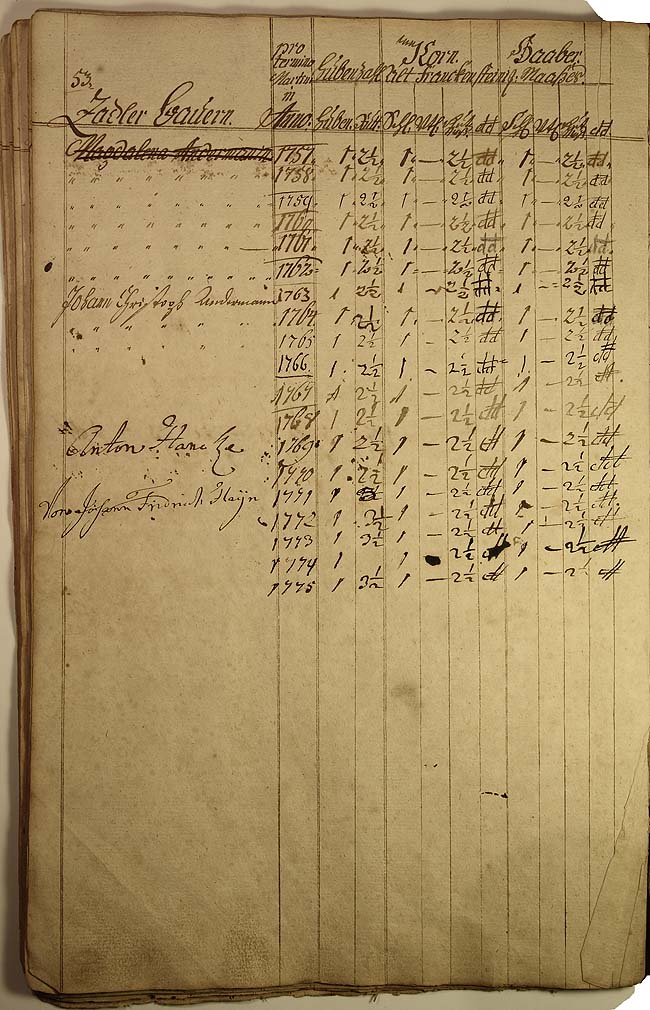 53.
pro termino Martini in Anno. Hubenzahl. Korn. Haaber.
Alt Franckensteing. Maaßes.
Zadler Bauern. Huben. Rutt.
Magdalena Andermannin 1757. 1. 2½ 1. — 2½ dd 1. — 2½ dd
" 1758. 1. 2½ 1. — 2½ dd 1. — 2½ dd
" 1759. 1. 2½ 1. — 2½ dd 1. — 2½ dd
" 1760. 1. 2½ 1. — 2½ dd 1. — 2½ dd
" 1761. 1. 2½ 1. — 2½ dd 1. — 2½ dd
" 1762. 1. 2½ 1. — 2½ dd 1. — 2½ dd
Johann Christoph Andermann 1763 1 2½ 1. — 2½ dd 1. — 2½ dd
" 1764. 1. 2½ 1. — 2½ dd 1. — 2½ dd
" 1765 1 2½ 1. — 2½ dd 1. — 2½ dd
1766. 1. 2½ 1. — 2½ dd 1. — 2½ dd
1767 1 2½ 1 — 2½ dd 1 — 2½ dd
1768 1 2½ 1 — 2½ dd 1 — 2½ dd
Anton Hancke 1769 1 2½ 1 — 2½ dd 1 — 2½ dd
1770 1 2½ 1 — 2½ dd 1 — 2½ dd
Johann Fridrich Hayn 1771 1 1 — 2½ dd 1 — 2½ dd
1772 1 3½ 1 — 2½ dd 1 — 2½ dd
1773 1 3½ 1 — 2½ dd 1 — 2½ dd
1774 1 1 2½ dd 1 — 2½ dd
1775 1 3½ 1 — 2½ dd 1 — 2½ dd